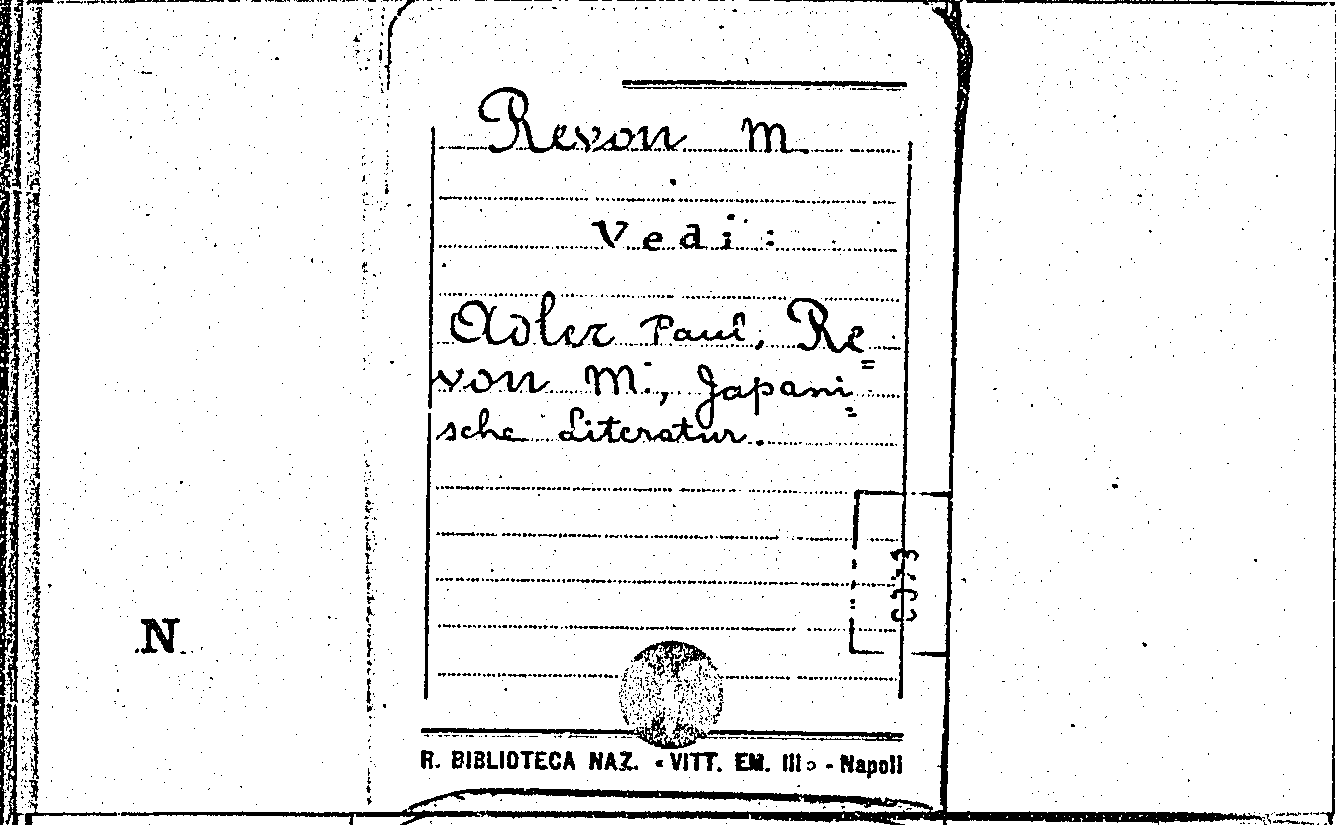 Revon M.
Vedi:
Adler Paul, Re=
von M., Japani=
sche Literatur.
N
R. BIBLIOTECA NAZ. «VITT. EM. III» - Napoli